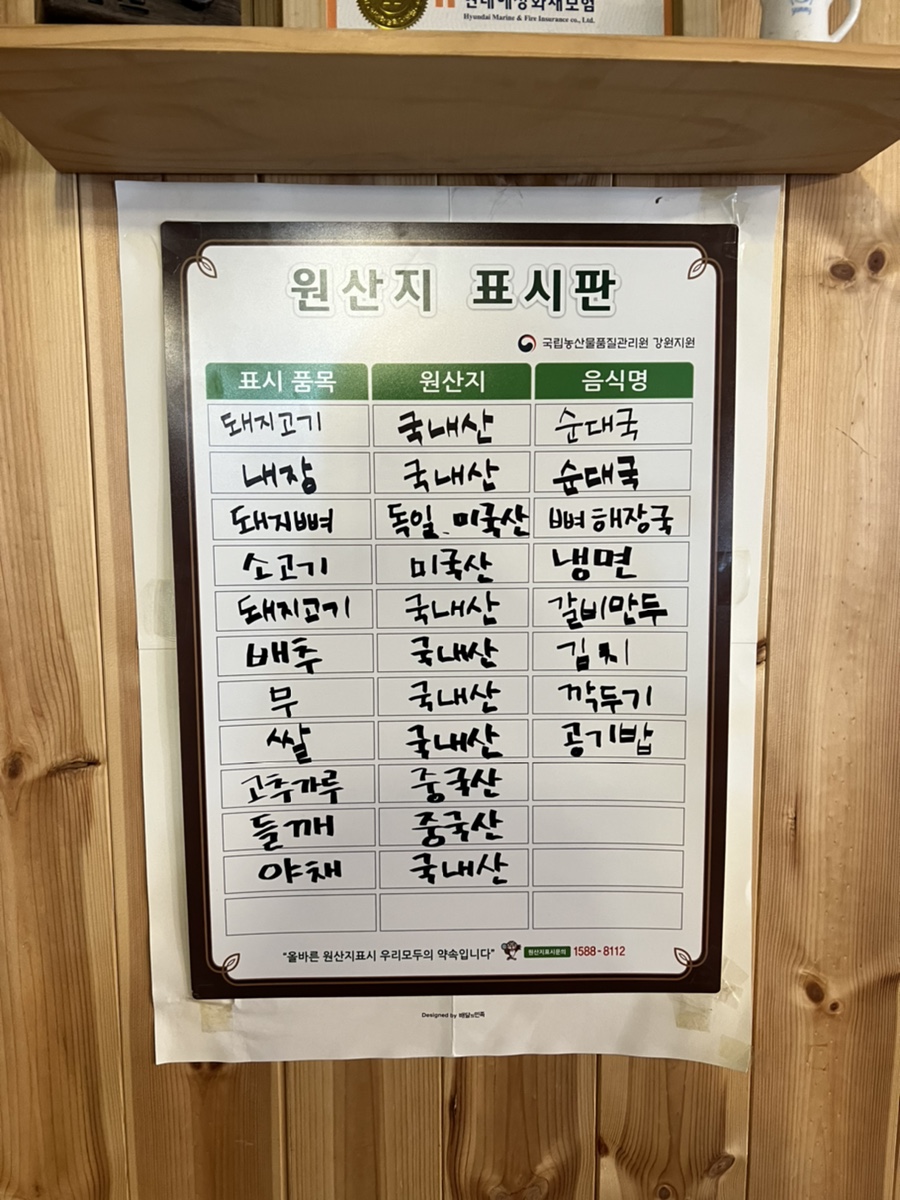 현대해상화재보험
Hyundai Marine & Fire Insurance co., Ltd.
원산지 표시판
국립농산물품질관리원 강원지원
표시 품목 원산지 음식명
돼지고기 국내산 순대국
내장 국내산 순대국
돼지뼈 독일, 미국산 뼈해장국
소고기 미국산 냉면
돼지고기 국내산 갈비만두
배추 국내산 김치
무 국내산 깍두기
쌀 국내산 공기밥
고추가루 중국산
들깨 중국산
야채 국내산
"올바른 원산지표시 우리모두의 약속입니다" 원산지표시문의 1588-8112
Designed by 배달의민족